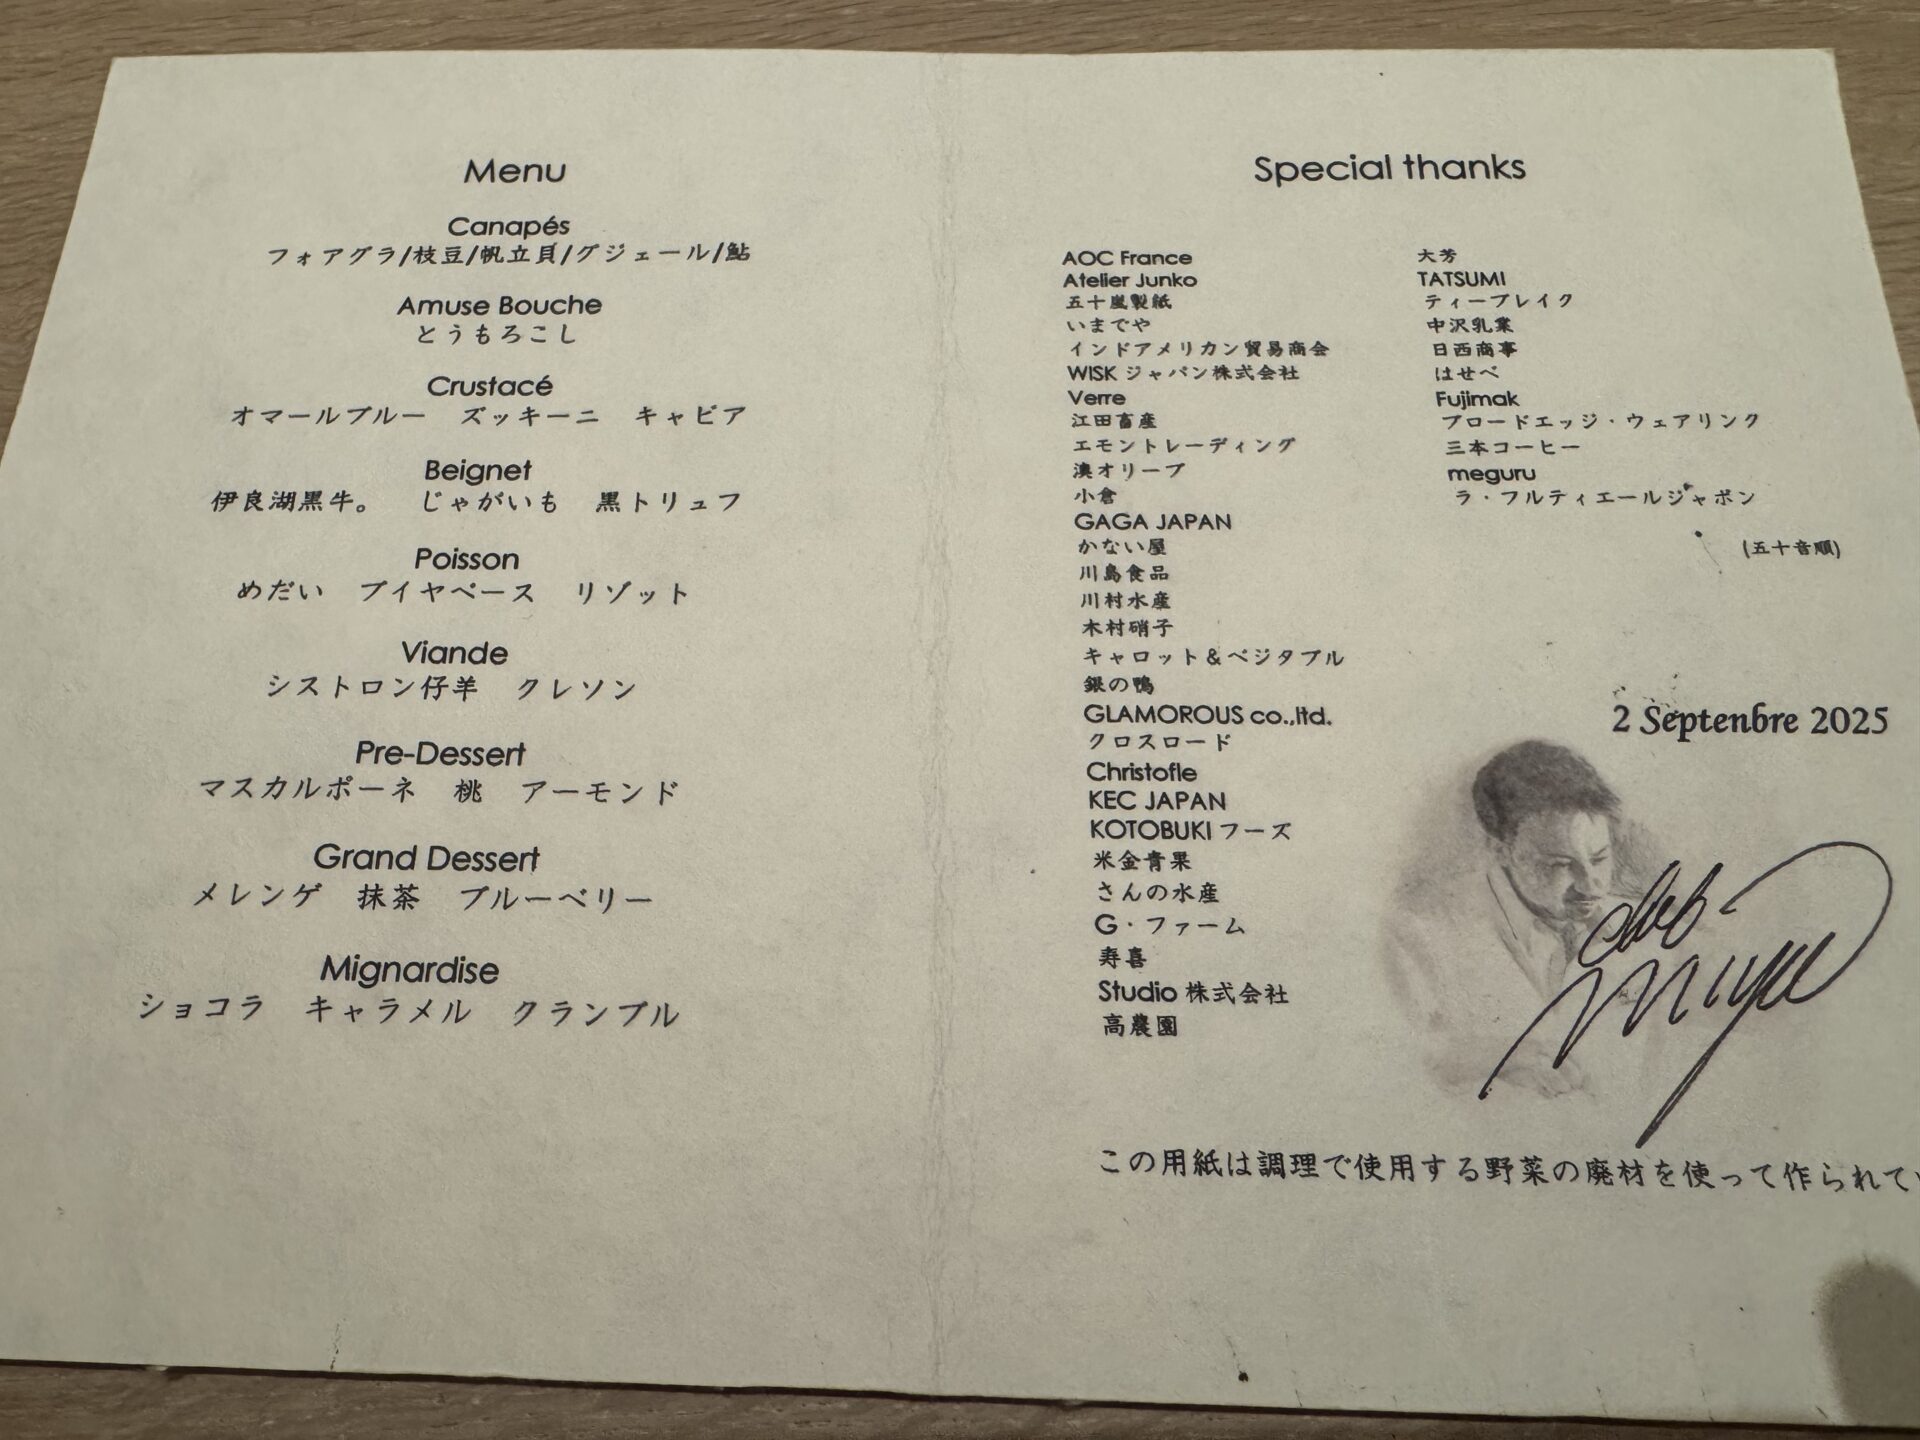 Menu
Canapés
フォアグラ/枝豆/帆立貝/グジェール/鮎
Amuse Bouche
とうもろこし
Crustacé
オマールブルー　ズッキーニ　キャビア
Beignet
伊良湖黒牛。　じゃがいも　黒トリュフ
Poisson
めだい　ブイヤベース　リゾット
Viande
シストロン仔羊　クレソン
Pre-Dessert
マスカルポーネ　桃　アーモンド
Grand Dessert
メレンゲ　抹茶　ブルーベリー
Mignardise
ショコラ　キャラメル　クランブル
Special thanks
AOC France
Atelier Junko
五十嵐製紙
いまでや
インドアメリカン貿易商会
WISK ジャパン株式会社
Verre
江田畜産
エモントレーディング
澳オリーブ
小倉
GAGA JAPAN
かない屋
川島食品
川村水産
木村硝子
キャロット＆ベジタブル
銀の鴨
GLAMOROUS co.,ltd.
クロスロード
Christofle
KEC JAPAN
KOTOBUKI フーズ
米金青果
さんの水産
G・ファーム
寿喜
Studio 株式会社
高農園
大芳
TATSUMI
ティーブレイク
中沢乳業
日西商事
はせべ
Fujimak
ブロードエッジ・ウェアリンク
三本コーヒー
meguru
ラ・フルティエールジャポン
(五十音順)
2 Septenbre 2025
この用紙は調理で使用する野菜の廃材を使って作られてい